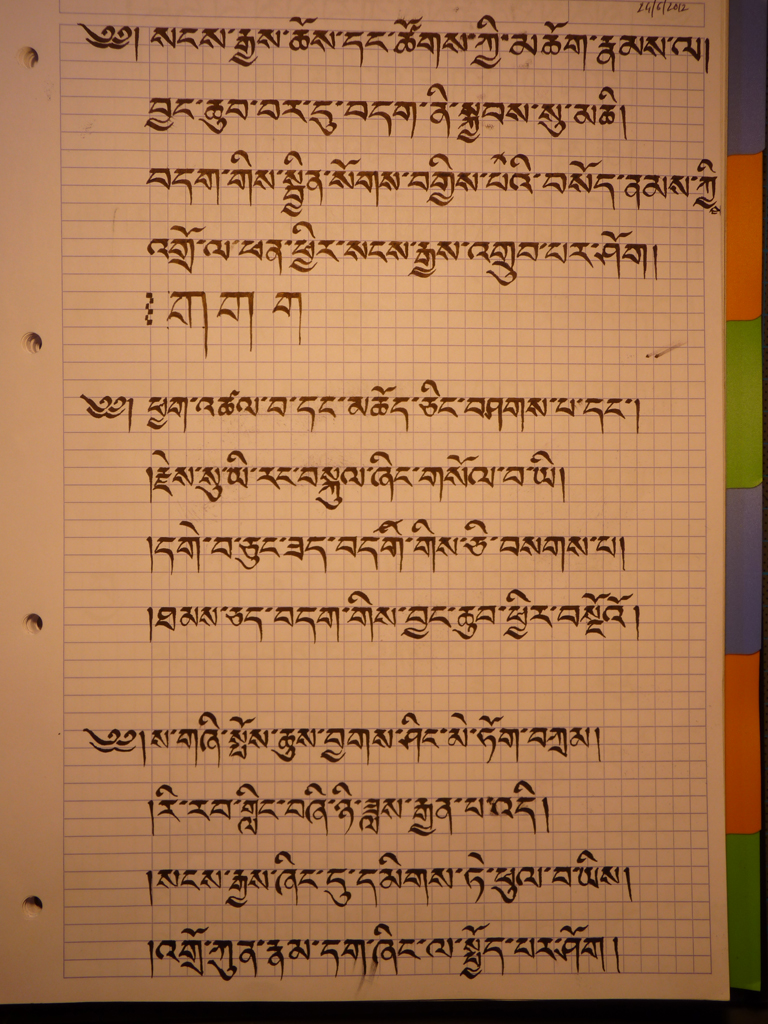 24/6/2012
༄༅། སངས་རྒྱས་ཆོས་དང་ཚོགས་ཀྱི་མཆོག་རྣམས་ལ།
བྱང་ཆུབ་བར་དུ་བདག་ནི་སྐྱབས་སུ་མཆི།
བདག་གིས་སྦྱིན་སོགས་བགྱིས་པའི་བསོད་ནམས་ཀྱི
འགྲོ་ལ་ཕན་ཕྱིར་སངས་རྒྱས་འགྲུབ་པར་ཤོག།
ཀ།ཀ། ག
༄༅། ཕྱག་འཚལ་བ་དང་མཆོད་ཅིང་བཤགས་པ་དང་།
།རྗེས་སུ་ཡི་རང་བསྐུལ་ཞིང་གསོལ་བ་ཡི།
།དགེ་བ་ཅུང་ཟད་བདགི་གིས་ཅི་བསགས་པ།
།ཐམས་ཅད་བདག་གིས་བྱང་ཆུབ་ཕྱིར་བསྔོའོ།
༄༅།ས་གཞི་སྤོས་ཆུས་བྱུགས་ཤིང་མེ་ཏོག་བཀྲམ།
།རི་རབ་གླིང་བཞི་ཉི་ཟླས་རྒྱན་པ་འདི།
།སངས་རྒྱས་ཞིང་དུ་དམིགས་ཏེ་ཕུལ་བ་ཡིས།
།འགྲོ་ཀུན་རྣམ་དག་ཞིང་ལ་སྤྱོད་པར་ཤོག།